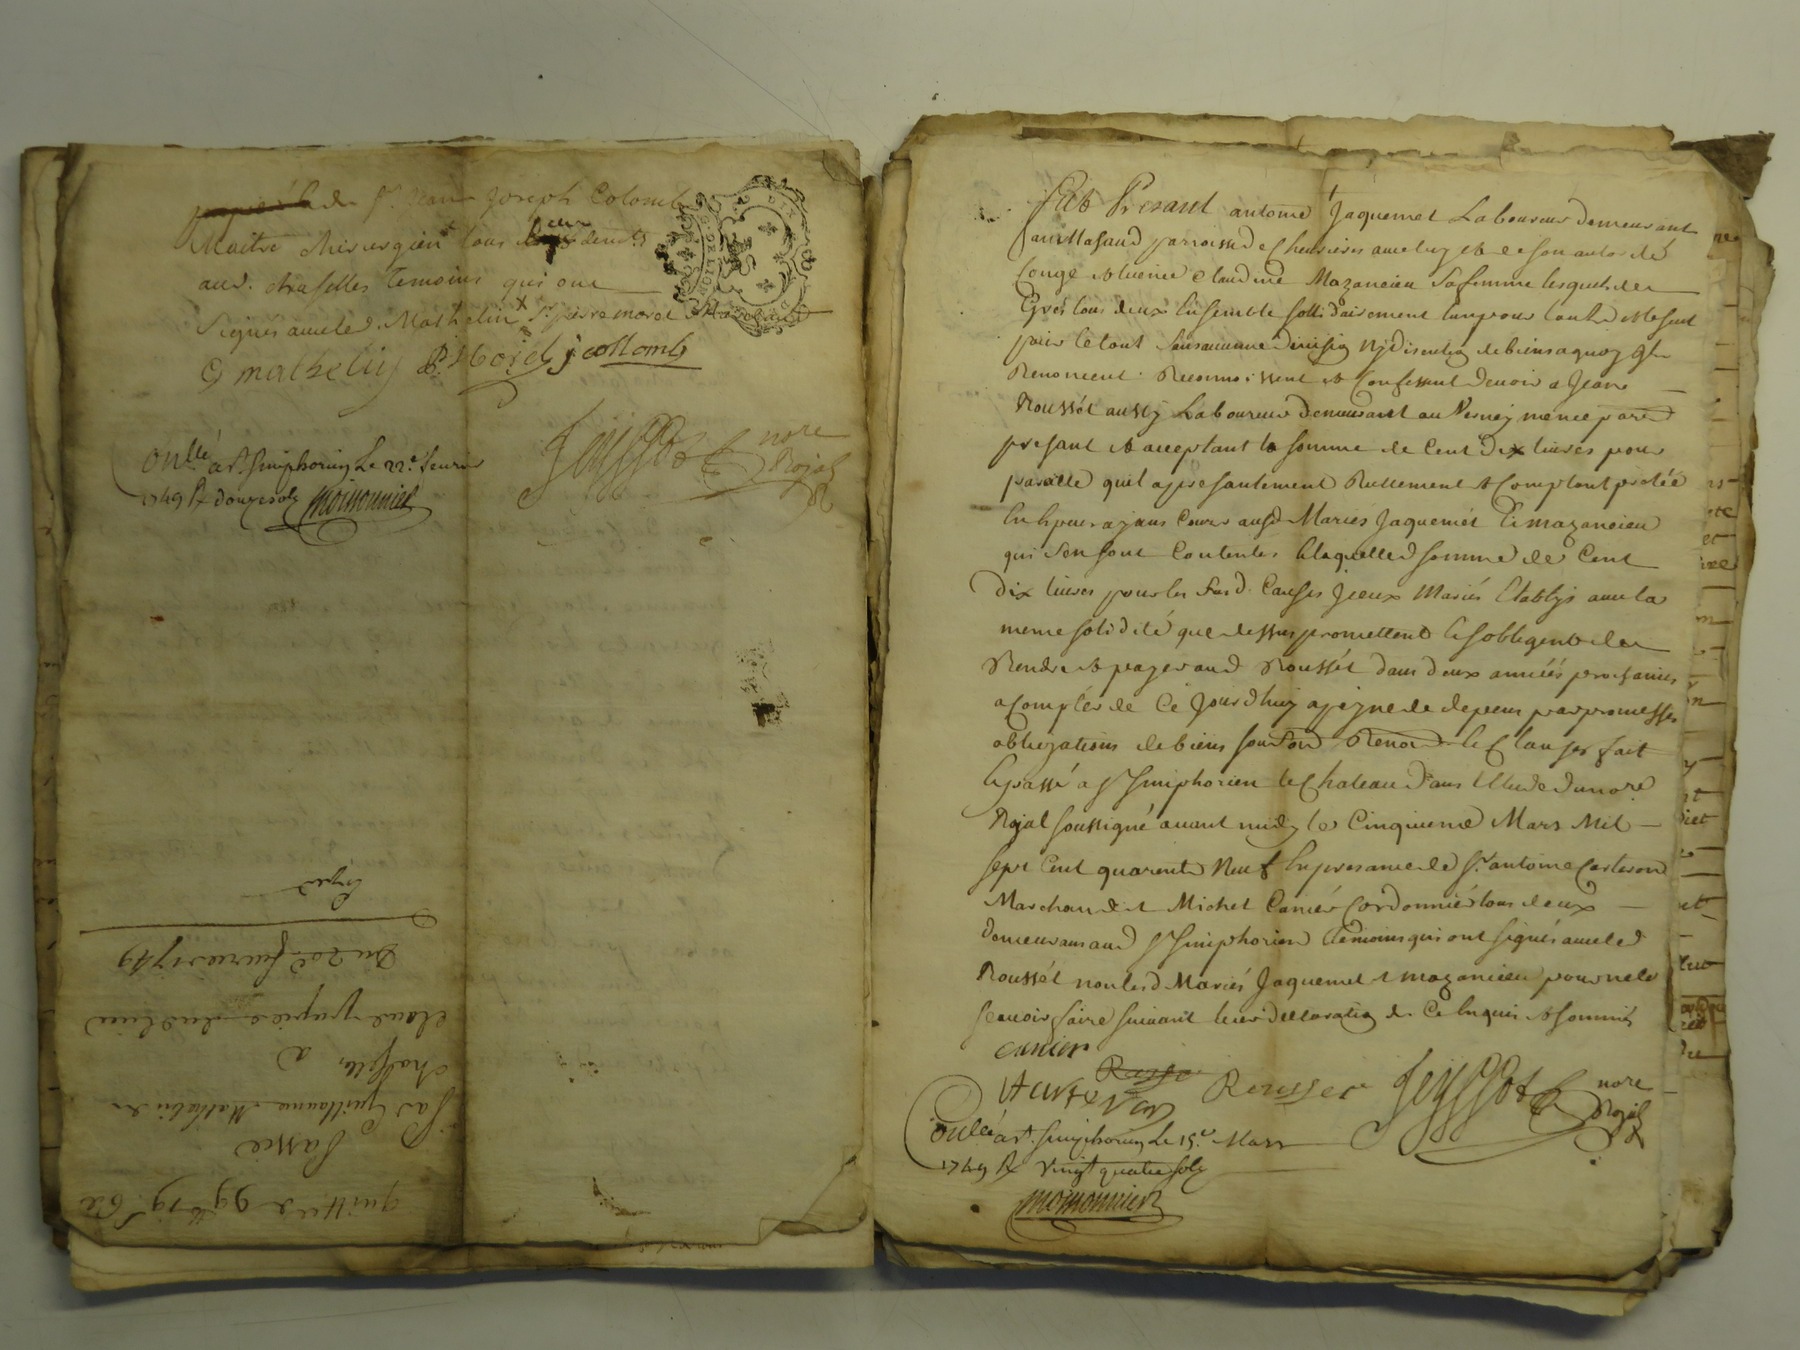 de Sr. Jean Joseph Colomb
Maitre Chirurgien tous deux
aud. chaselles temoins qui ont
Signés avec led. Mathelin Sr. pierre morel
G mathelin P. Morel j collomb
nore
Rojal
Onllé a St. Simphorien Le 22e. feurier
1749 R douze sols
moissonnier
quittce 99tt 19s 6d
Passée
Par Guillaume Mathelin de
chaselles a
Claude
Du 20e feurier 1749
Exped
Fut Presant antoine Jaquemet Laboureur demeurant
parroisse de Chevrieres avec luy et de son autorité
Congé et licence Claudine Mazancieu Sa femme lesquels de
Gres tous deux Ensemble sollidairement lun pour lautre et le seul
pour le tout Sans aucune division Ny discution de biens a quoy
Renoncent. Reconnoissent et Confessent devoir a Jean
Roussét aussy Laboureur demeurant au Verney mence
presant et acceptant la somme de Cent dix livres pour
pareille quil a presantement Reellement et Comptant pretée
ausd. Mariés Jaquemét et mazancieu
qui sen sont Contentes Laquelle somme de Cent
dix livres pour les susd. Causes Jceux Mariés Etablys avec la
meme solidité que dessus promettent et sobligent de
Rendre et payer aud Roussét dans deux années prochaines
a Compter de Ce Jourdhuy a peyne de depens par promesses
obligations de biens Renon et Clauses fait
et passé a St Simphorien le Chateau dans Etude du nore
Rojal soussigné avant midy le Cinquieme Mars Mil
sept Cent quarente Neuf En presance de Sr. antoine Carteron
Marchand et Michel Caniér Cordonniér tous deux
demeurans aud St Simphorien temoins qui ont signés avec led
Roussét non lesd Mariés Jaquemet et mazancieu pour ne le
scavoir faire suivant leur declaration de Ce Enquis et sommés
canier
Rousset
nore
Rojal
Onllé a St. Simphorien Le 15e. Mars
1749 R Vingt quatre sols
moissonnier